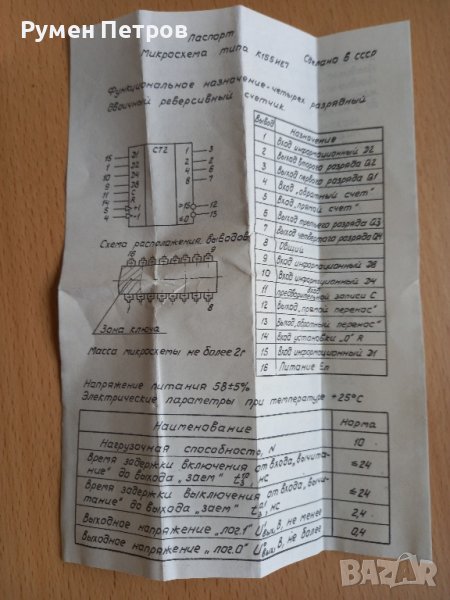 Румен Петров
Паспорт
Микросхема типа К155ИЕ7
Сделано в СССР
Функциональное назначение-четырех разрядный
двоичный реверсивный счетчик.
СТ2
Вывод Назначение
1 Вход информационный Э2
2 Выход второго разряда Q2
3 Выход первого разряда Q1
4 Вход „обратный счет"
5 Вход „прямой счет"
6 Выход третьего разряда Q3
7 Выход четвертого разряда Q4
8 Общий
9 Вход информационный Э8
10 Вход информационный Э4
11 Вход предварительной записи С
12 Выход „прямой перенос"
13 Выход „обратный перенос"
14 Вход установки „0" R
15 Вход информационный Э1
16 Питание Еп
Схема расположения выводов
16 9
1 8
Зона ключа
Масса микросхемы не более 2г
Напряжение питания 5В±5%
Электрические параметры при температуре +25°С
Наименование Норма
Нагрузочная способность, N 10
Время задержки включения от входа „вычита-
ние" до выхода „заем" нс ≤24
Время задержки выключения от входа „вычи-
тание" до выхода „заем" нс ≤24
Выходное напряжение „лог.1" В, не менее 2,4
Выходное напряжение „лог.0" В, не более 0,4
BAZAR